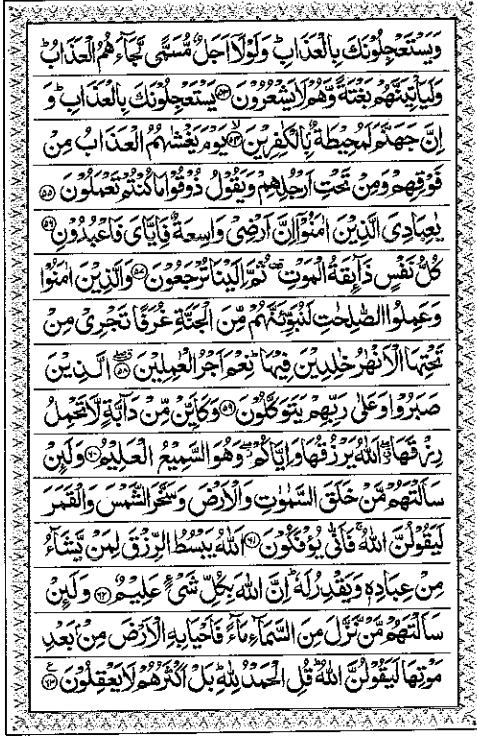 وَيَسْتَعْجِلُوْنَكَ بِالْعَذَابِ ؕ وَلَوْلَاۤ اَجَلٌ مُّسَمًّى لَّجَآءَهُمُ الْعَذَابُ ؕ
وَلَيَاْتِيَنَّهُمْ بَغْتَةً وَّهُمْ لَا يَشْعُرُوْنَ ﴿۵۳﴾ يَسْتَعْجِلُوْنَكَ بِالْعَذَابِ ؕ وَ
اِنَّ جَهَنَّمَ لَمُحِيْطَةٌۢ بِالْكٰفِرِيْنَ ۙ﴿۵۴﴾ يَوْمَ يَغْشٰىهُمُ الْعَذَابُ مِنْ
فَوْقِهِمْ وَمِنْ تَحْتِ اَرْجُلِهِمْ وَيَقُوْلُ ذُوْقُوْا مَا كُنْتُمْ تَعْمَلُوْنَ ﴿۵۵﴾
يٰعِبَادِيَ الَّذِيْنَ اٰمَنُوْۤا اِنَّ اَرْضِيْ وَاسِعَةٌ فَاِيَّايَ فَاعْبُدُوْنِ ﴿۵۶﴾
كُلُّ نَفْسٍ ذَآئِقَةُ الْمَوْتِ ۟ ثُمَّ اِلَيْنَا تُرْجَعُوْنَ ﴿۵۷﴾ وَالَّذِيْنَ اٰمَنُوْا
وَعَمِلُوا الصّٰلِحٰتِ لَنُبَوِّئَنَّهُمْ مِّنَ الْجَنَّةِ غُرَفًا تَجْرِيْ مِنْ
تَحْتِهَا الْاَنْهٰرُ خٰلِدِيْنَ فِيْهَا ؕ نِعْمَ اَجْرُ الْعٰمِلِيْنَ ﴿۵۸﴾ الَّذِيْنَ
صَبَرُوْا وَعَلٰى رَبِّهِمْ يَتَوَكَّلُوْنَ ﴿۵۹﴾ وَكَاَيِّنْ مِّنْ دَآبَّةٍ لَّا تَحْمِلُ
رِزْقَهَا ۖ اَللّٰهُ يَرْزُقُهَا وَاِيَّاكُمْ ۖ وَهُوَ السَّمِيْعُ الْعَلِيْمُ ﴿۶۰﴾ وَلَئِنْ
سَاَلْتَهُمْ مَّنْ خَلَقَ السَّمٰوٰتِ وَالْاَرْضَ وَسَخَّرَ الشَّمْسَ وَالْقَمَرَ
لَيَقُوْلُنَّ اللّٰهُ ۚ فَاَنّٰى يُؤْفَكُوْنَ ﴿۶۱﴾ اَللّٰهُ يَبْسُطُ الرِّزْقَ لِمَنْ يَّشَآءُ
مِنْ عِبَادِهٖ وَيَقْدِرُ لَهٗ ؕ اِنَّ اللّٰهَ بِكُلِّ شَيْءٍ عَلِيْمٌ ﴿۶۲﴾ وَلَئِنْ
سَاَلْتَهُمْ مَّنْ نَّزَّلَ مِنَ السَّمَآءِ مَآءً فَاَحْيَا بِهِ الْاَرْضَ مِنْۢ بَعْدِ
مَوْتِهَا لَيَقُوْلُنَّ اللّٰهُ ؕ قُلِ الْحَمْدُ لِلّٰهِ ؕ بَلْ اَكْثَرُهُمْ لَا يَعْقِلُوْنَ ﴿۶۳﴾